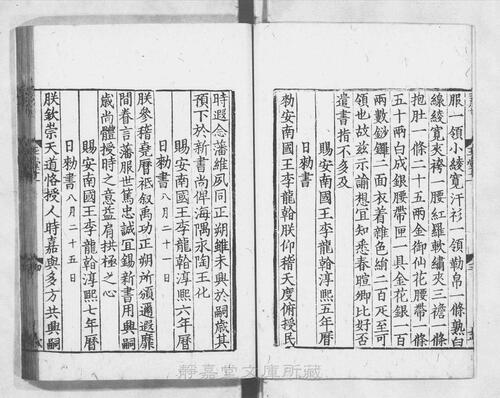 服一領小綾寬汗衫一領勒帛一條熟白
線綾寬夾袴一腰紅羅軟繡夾三襜一條
抱肚一條二十五兩金御仙花腰帶一條
五十兩白成銀腰帶匣一具金花銀一百
兩數鈔鑼二面衣着雜色絹二百疋至可
領也故茲示諭想宜知悉春暄卿比好否
遣書指不多及
日勑書
賜安南國王李龍翰淳熙五年曆
勑安南國王李龍翰朕仰稽天度俯授民
時遐念藩維夙同正朔雖未興於嗣歲其
預下於新書尚俾海隅永陶王化
八月二十一日
賜安南國王李龍翰淳熙六年曆
日勑書
朕參稽堯曆祗叙禹功正朔所頒遐邇靡
間眷言藩服世篤忠誠宜錫新書用興嗣
歲尚體授時之意益肩拱極之心
賜安南國王李龍翰淳熙七年曆
日勑書
八月二十五日
朕欽崇天道恪授人時嘉與多方共興嗣
靜嘉堂文庫所藏